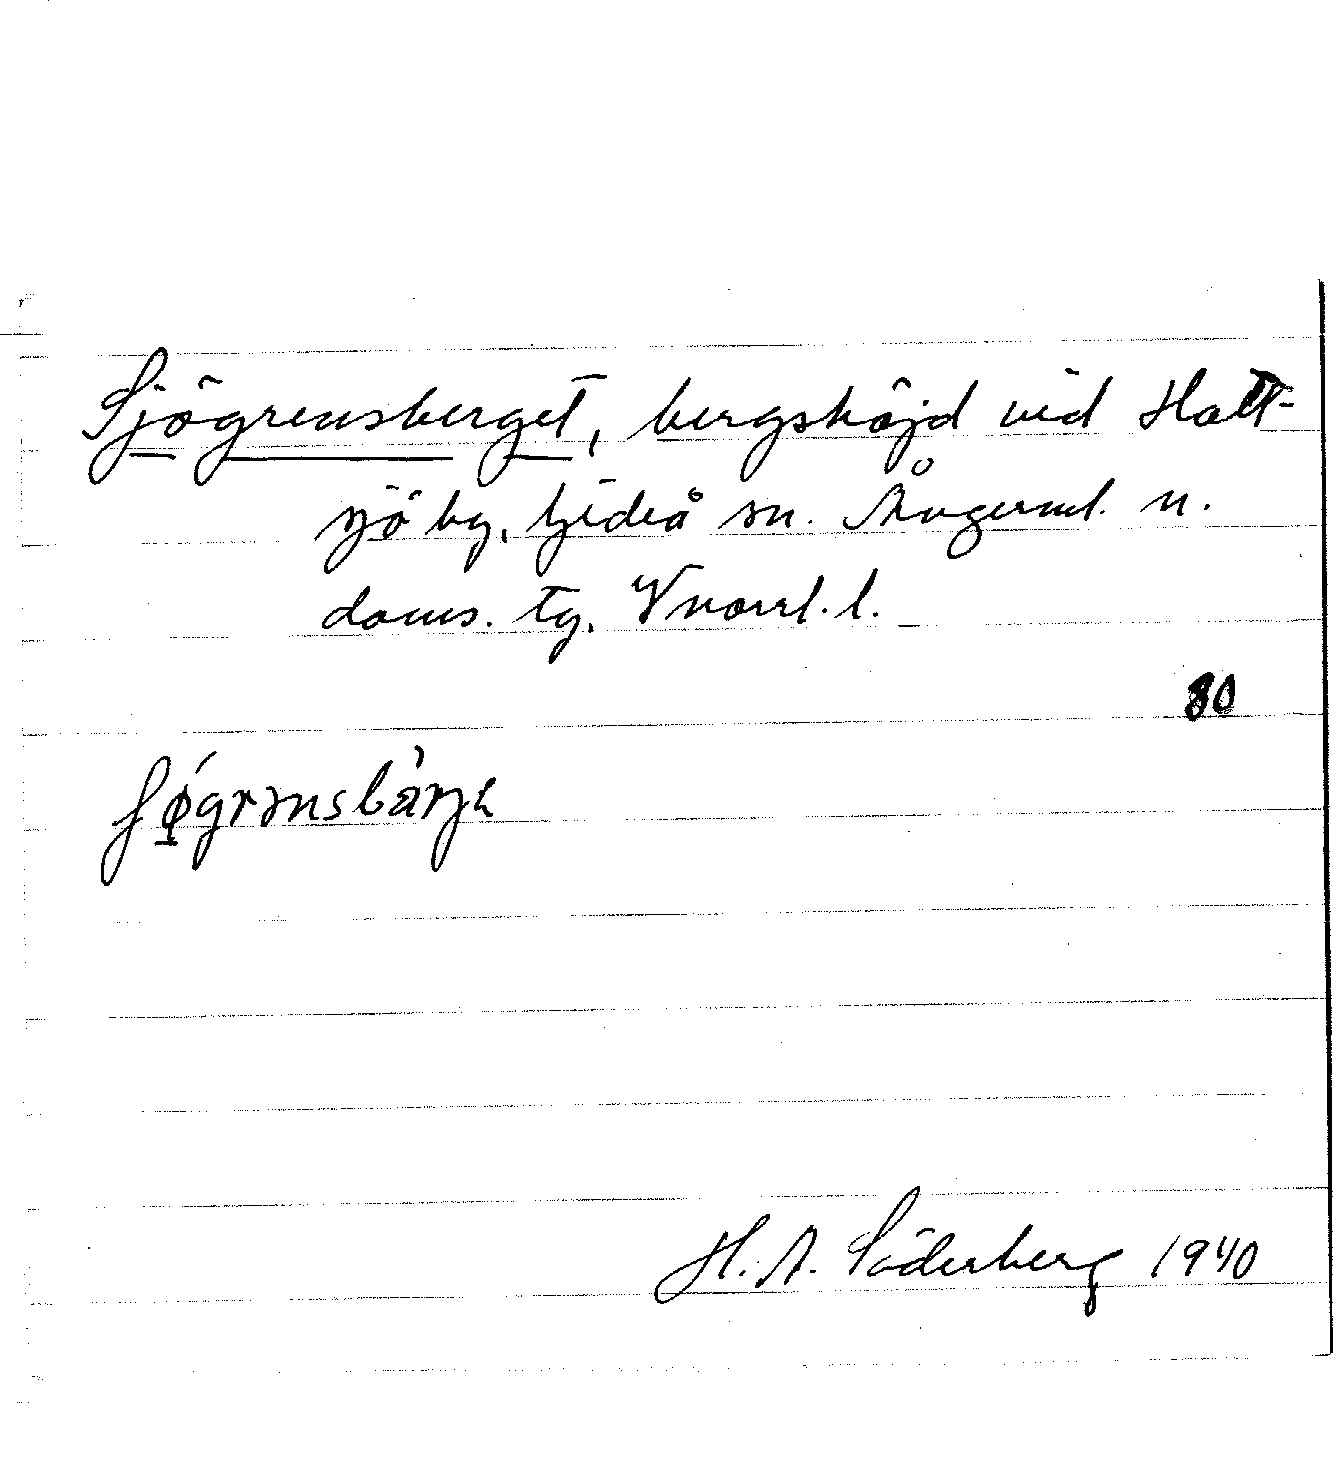 Sjögrensberget, bergshöjd vid Hatt-
sjö by, Gideå sn. Ångerml. n.
doms. tg. Vnorrl. l.
80
H. A. Söderberg 1940